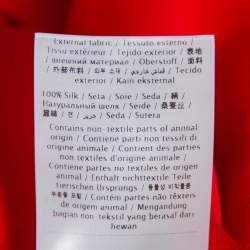 External fabric / Tessuto esterno /
Tissu extérieur / Tejido exterior / 表地
/ внешний материал / Oberstoff / 面料
/ 外部布料 / 외부 소재 / قماش خارجي / Tecido
exterior / Kain eksternal
100% Silk / Seta / Soie / Seda / 絹 /
Натуральный шелк / Seide / 桑蚕丝 /
蠶絲 / 견 / حرير / Seda / Sutera
Contains non-textile parts of animal
origin / Contient des parties
non textiles d'origine animale /
Contiene partes no textiles de origen
animal / Enthält nichttextile Teile
tierischen Ursprungs / 동물성 비직물
부분품 포함 / Contém partes não têxteis
de origem animal / Mengandung
bagian non-tekstil yang berasal dari
hewan